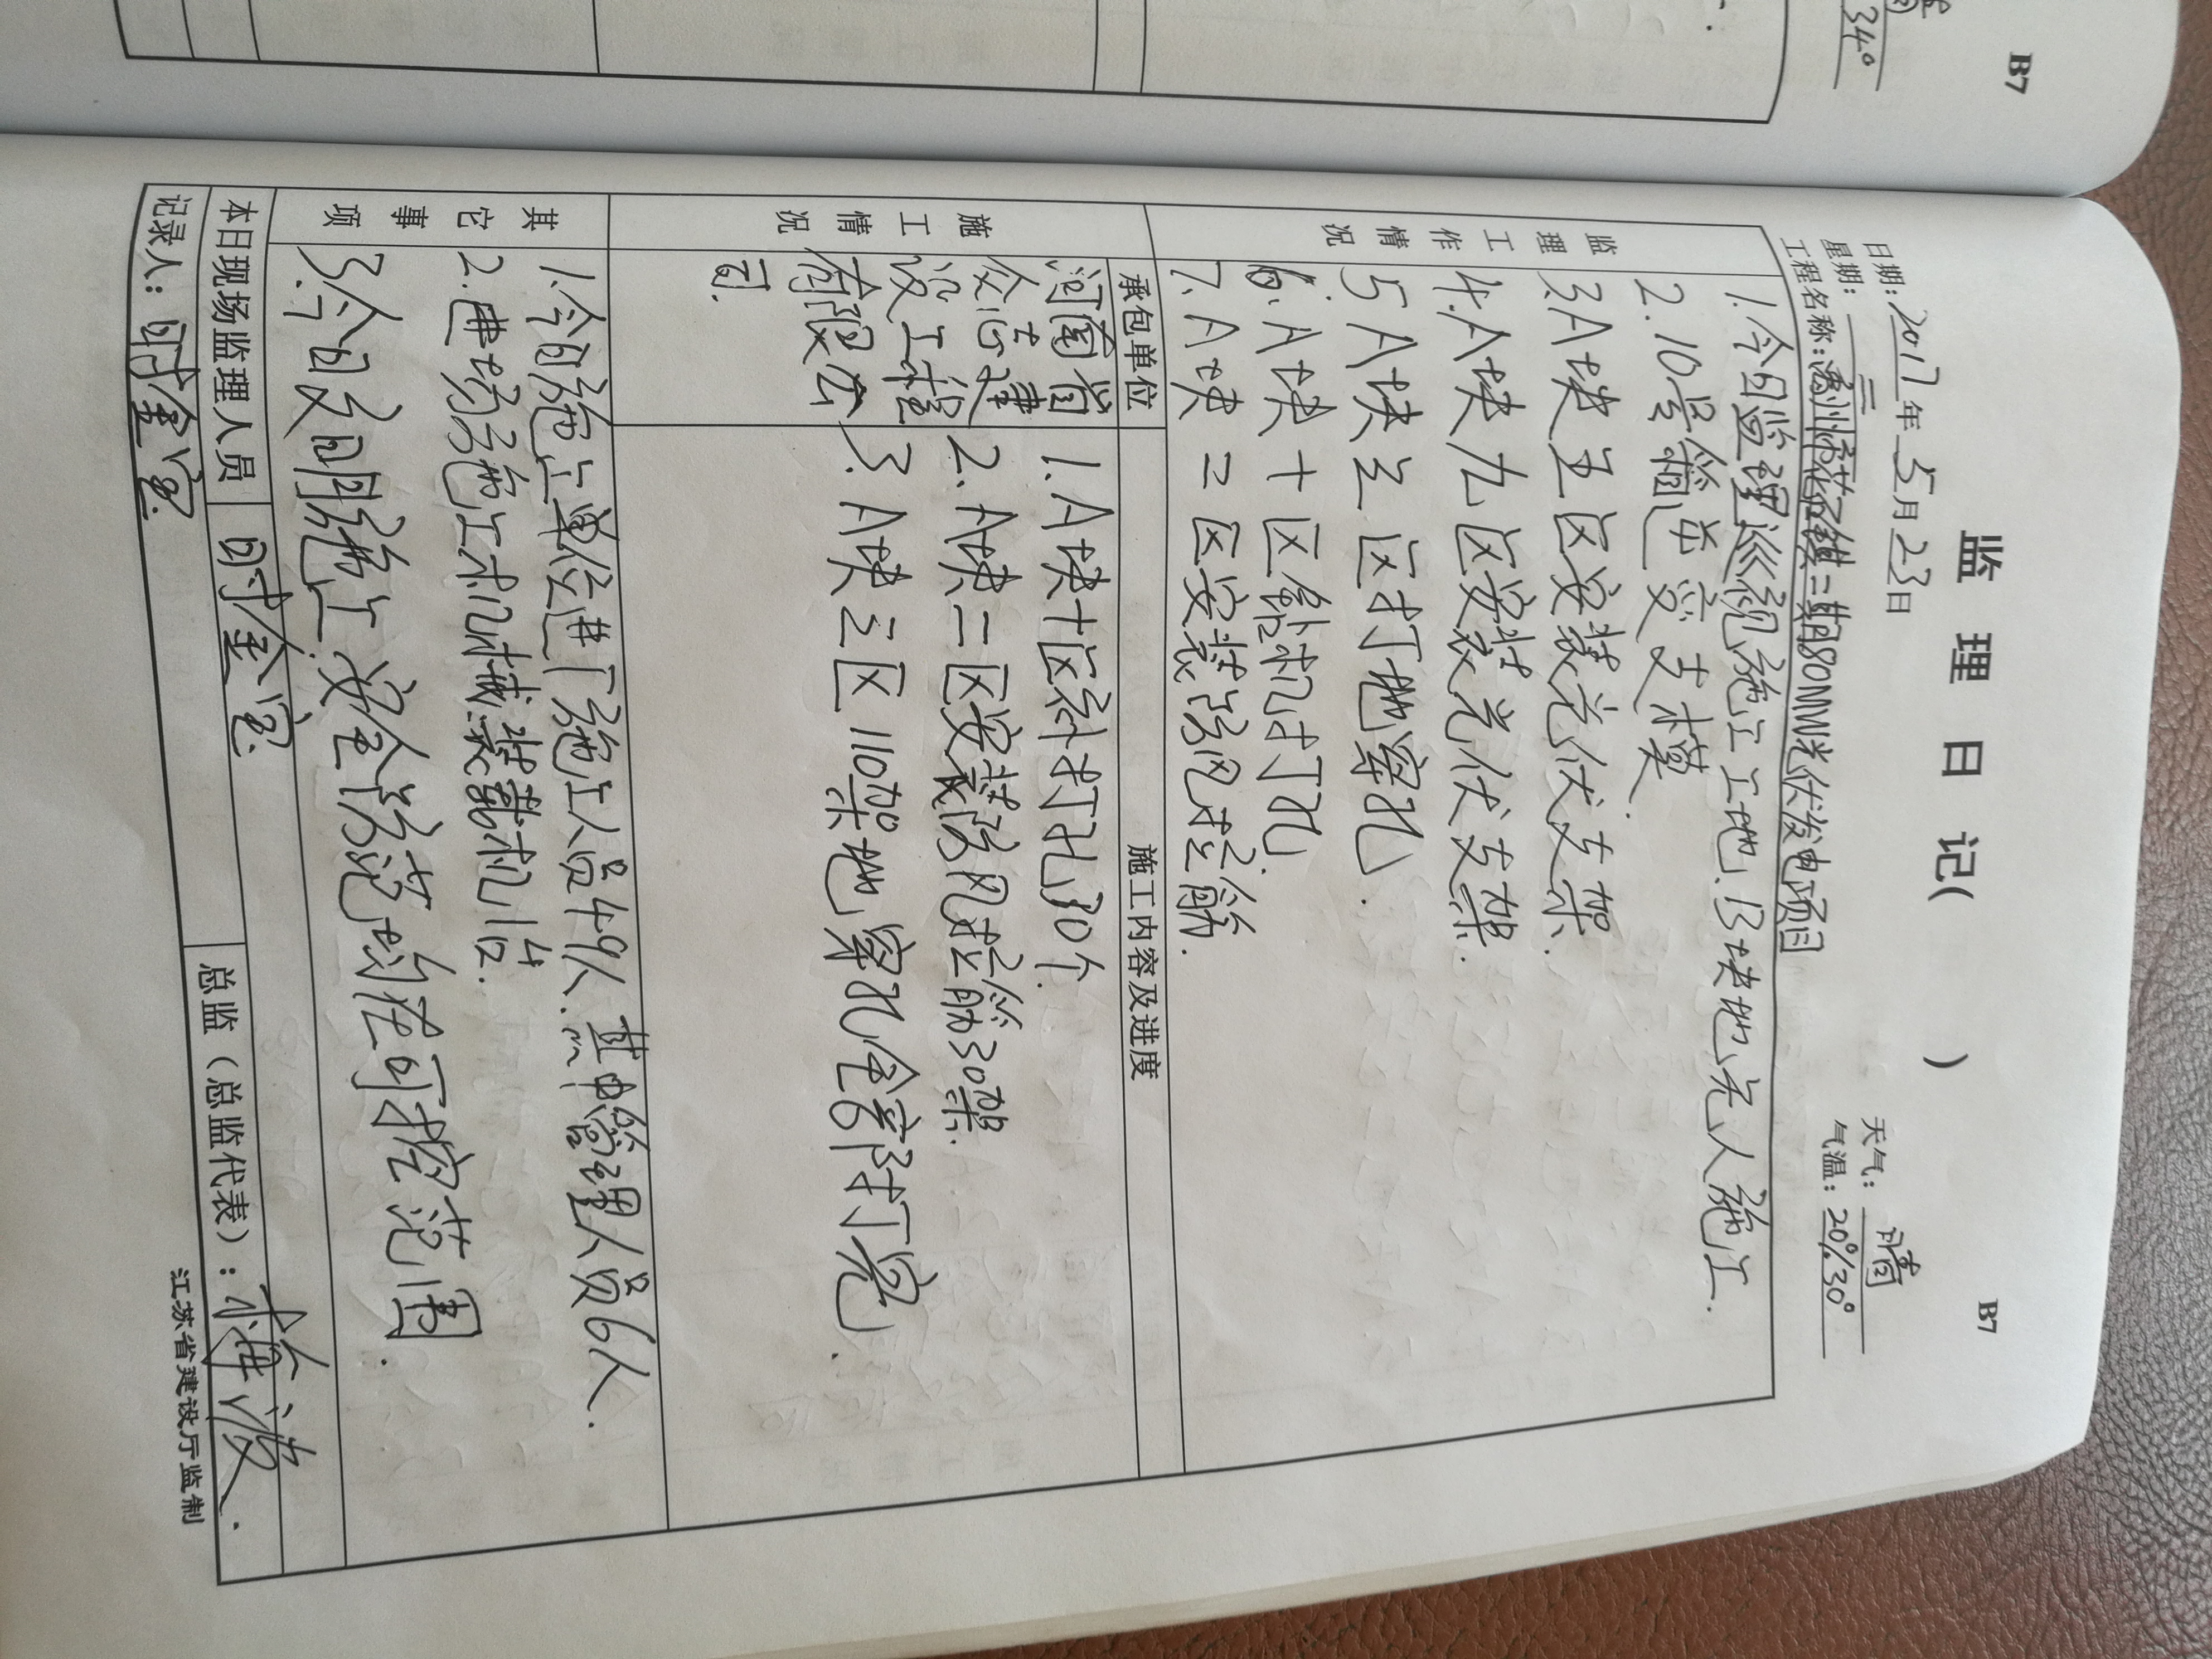 34°
B7
B7
监 理 日 记（ ）
日期：2017年5月23日
天气：晴
星期：二
气温：20°/30°
工程名称：二期80MW光伏发电项目
监理工作情况
1.今日监理巡视施工工地，B块地无人施工.
2.10号箱逆变支模.
3.A块五区安装光伏支架.
4.A块九区安装光伏支架.
5A块三区打地窜孔.
6.A块十区斜打孔.
7.A块二区安装防风拉筋.
施工情况
承包单位
施工内容及进度
设工程
有限公
司.
1.A块十区斜打孔30个.
2.A块二区安装防风拉筋30架.
3.A块三区110架地窜孔全部打完.
其它事项
1.今日施工单位进厂施工人员49人.其中管理人员6人.
2.进场施工机械装载机1台.
3.今日文明施工.安全防范都在可控范围.
本日现场监理人员
时金宝.
总监（总监代表）：
记录人：时金宝.
江苏省建设厅监制